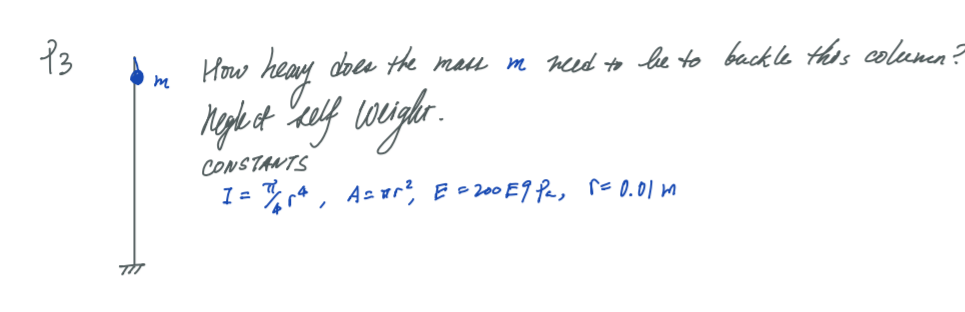 P3
m How heavy does the mass m need to be to buckle this column?
Neglect self weight.
CONSTANTS
I = π/4 r⁴, A = πr², E = 200 E9 Pa, r = 0.01 m